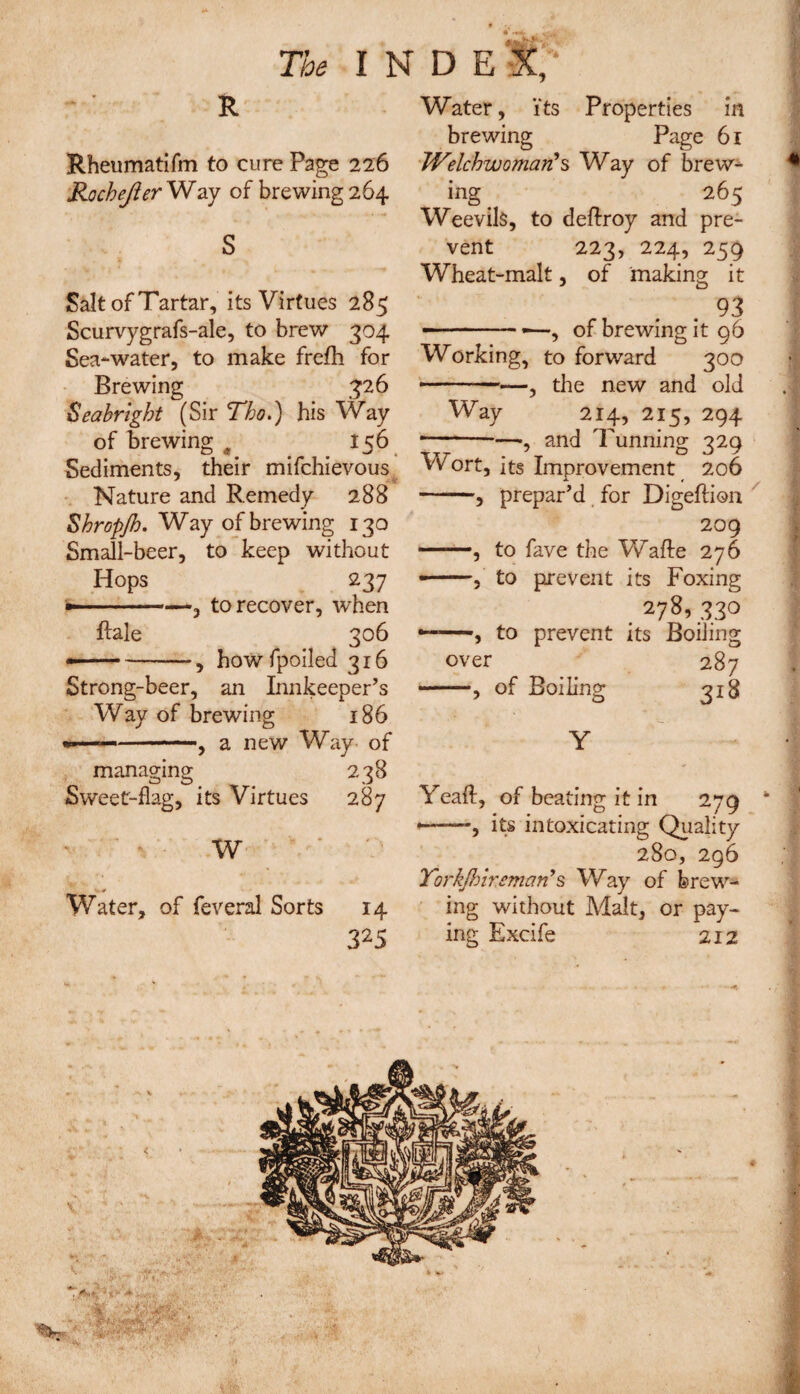 The INDEX,
R
Rheumatiſm to cure Page 226
Rocheſter Way of brewing 264
S
Salt of Tartar, its Virtues 285
Scurvygraſs-ale, to brew 304
Sea-water, to make freſh for
Brewing 326
Seabright (Sir Tho.) his Way
of brewing 156
Sediments, their miſchievous
Nature and Remedy 288
Shropſh. Way of brewing 130
Small-beer, to keep without
Hops 237
————, to recover, when
ſtale 306
————, how ſpoiled 316
Strong-beer, an Innkeeper's
Way of brewing 186
————, a new Way of
managing 238
Sweet-flag, its Virtues 287
W
Water, of ſeveral Sorts 14
325
Water, its Properties in
brewing Page 61
Welchwoman's Way of brew-
ing 265
Weevils, to deſtroy and pre-
vent 223, 224, 259
Wheat-malt, of making it
93
————, of brewing it 96
Working, to forward 300
————, the new and old
Way 214, 215, 294
————, and Tunning 329
Wort, its Improvement 206
——, prepar'd for Digeſtion
209
——, to ſave the Waſte 276
——, to prevent its Foxing
278, 330
——, to prevent its Boiling
over 287
——, of Boiling 318
Y
Yeaſt, of beating it in 279
——, its intoxicating Quality
280, 296
Yorkſhireman's Way of brew-
ing without Malt, or pay-
ing Exciſe 212